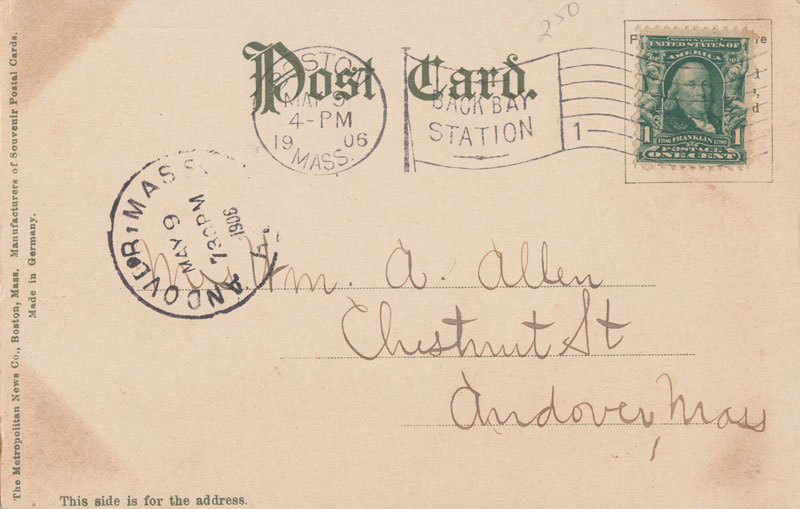 250
Post Card.
BOSTON
MAY 9
4-PM
1906
MASS.
BACK BAY
STATION
1
SERIES 1902
UNITED STATES OF
AMERICA
1 1706 FRANKLIN 1790 1
POSTAGE
ONE CENT
ANDOVER MASS.
MAY 9
730PM
1906
Wm. A. Allen
Chestnut St
Andover, Mass
This side is for the address.
The Metropolitan News Co., Boston, Mass. Manufacturers of Souvenir Postal Cards.
Made in Germany.